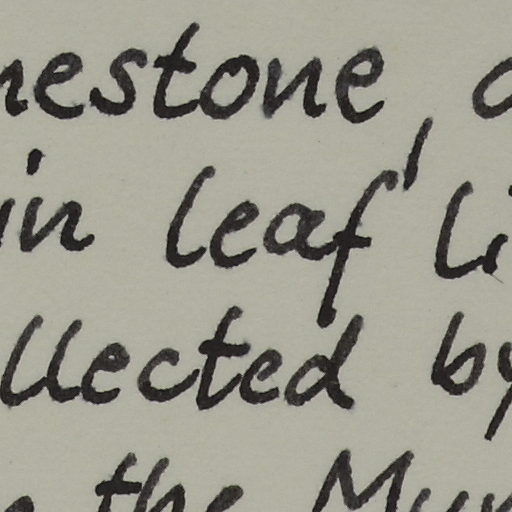 nestone,
in leaf li
llected by
the Mun